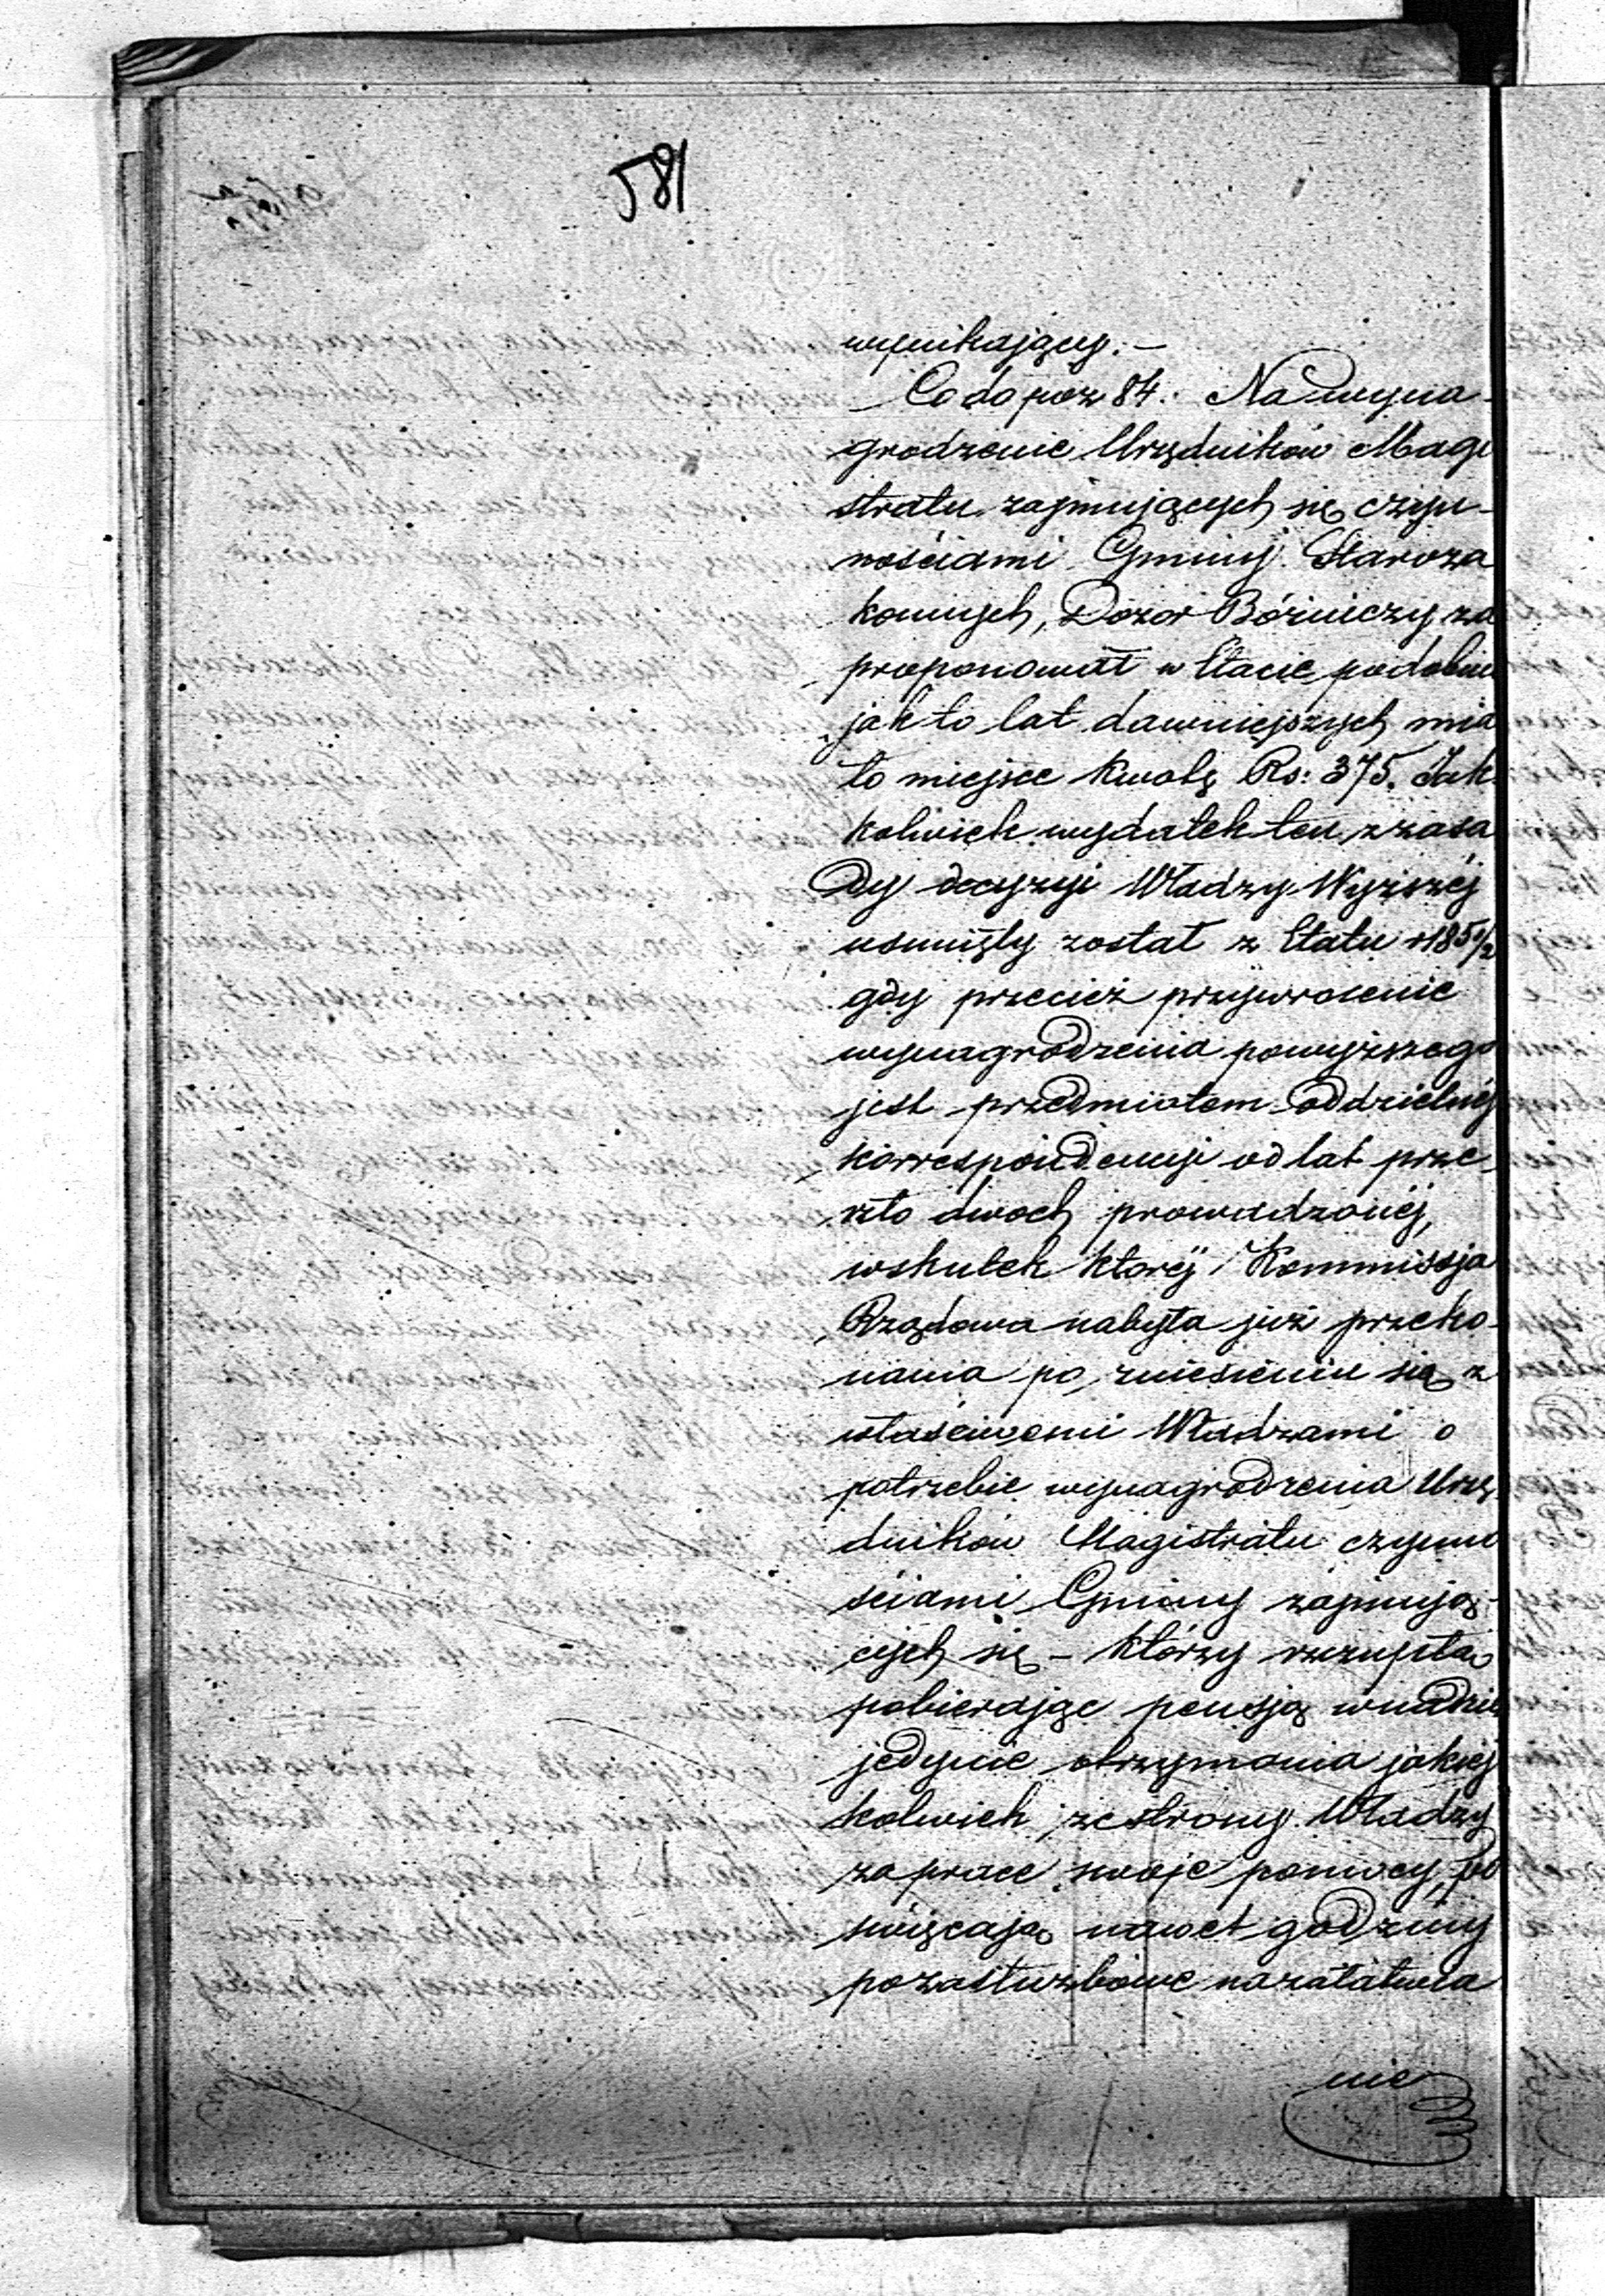 581
wynikający. —
Co do poz 84. Na wyna-
grodzenie Urzędników Magi
stratu zajmujących się czyn-
nościami Gminy Staroza
konnych, Dozór Bóżniczy za
proponował w Etacie podobnie
jak to lat dawniejszych mia
ło miejsce kwotę Rs: 375. Jak
kolwiek wydatek ten z zasa
dy decyzyi Władzy Wyższéj
usunięty został z Etatu r 185½
gdy przecież przywrócenie
wynagrodzenia powyższego
jest przedmiotem oddzielnéj
korrespondencyi od lat prze
szło dwoch prowadzonéj,
wskutek któréj Kommissja
Rządowa nabyła już przeko-
nania po zniesieniu się z
właściwemi Władzami o
potrzebie wynagrodzenia Urzę
dników Magistratu czynno
ściami Gminy zajmują-
cych się – którzy szczupłą
pobierając pensją w nadziei
jedynie otrzymania jakiej
kolwiek ze strony Władzy
za prace swoje pomocy, po
święcają nawet godziny
pozasłużbowe na załatwia
nie